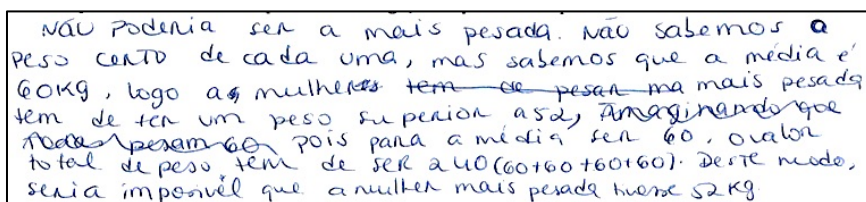 Não poderia ser a mais pesada. Não sabemos o
peso certo de cada uma, mas sabemos que a média é
60Kg, logo as mulheres tem de pesar ma mais pesada
tem de ter um peso superior a 52, Imaginando que
todas pesam 60, pois para a média ser 60, o valor
total de peso tem de ser 240 (60+60+60+60). Deste modo,
seria impossível que a mulher mais pesada tivesse 52Kg.